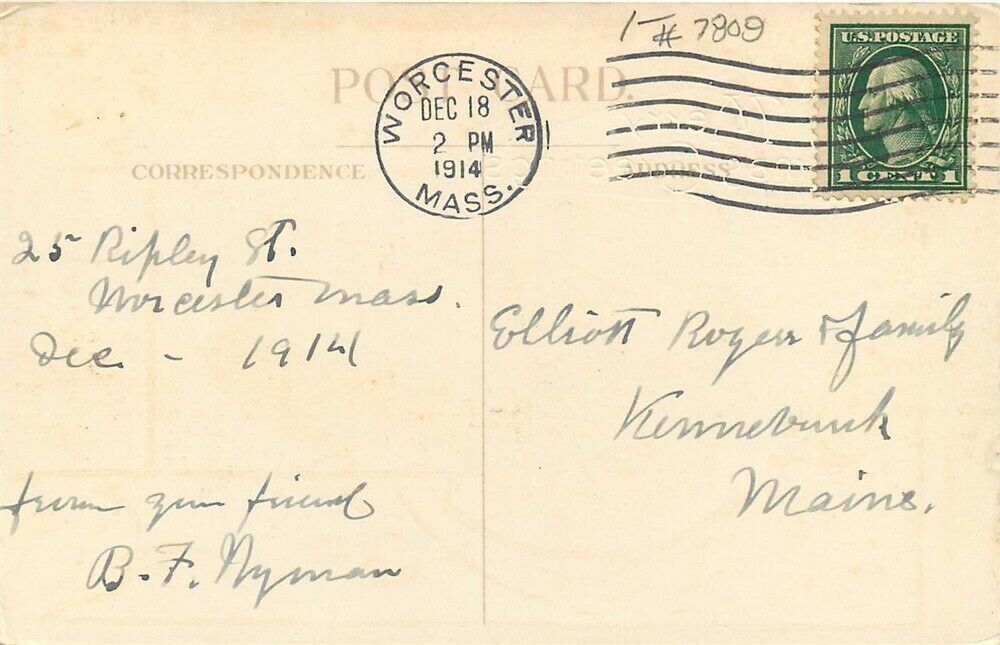 1- # 7809
U.S. POSTAGE
1 CENTS 1
POST CARD.
WORCESTER
DEC 18
2 PM
1914
MASS.
CORRESPONDENCE
ADDRESS
25 Ripley St.
Worcester Mass.
Dec. - 1914
from your friend
B. F. Nyman
Elliott Rogers & family
Kennebunk
Maine.